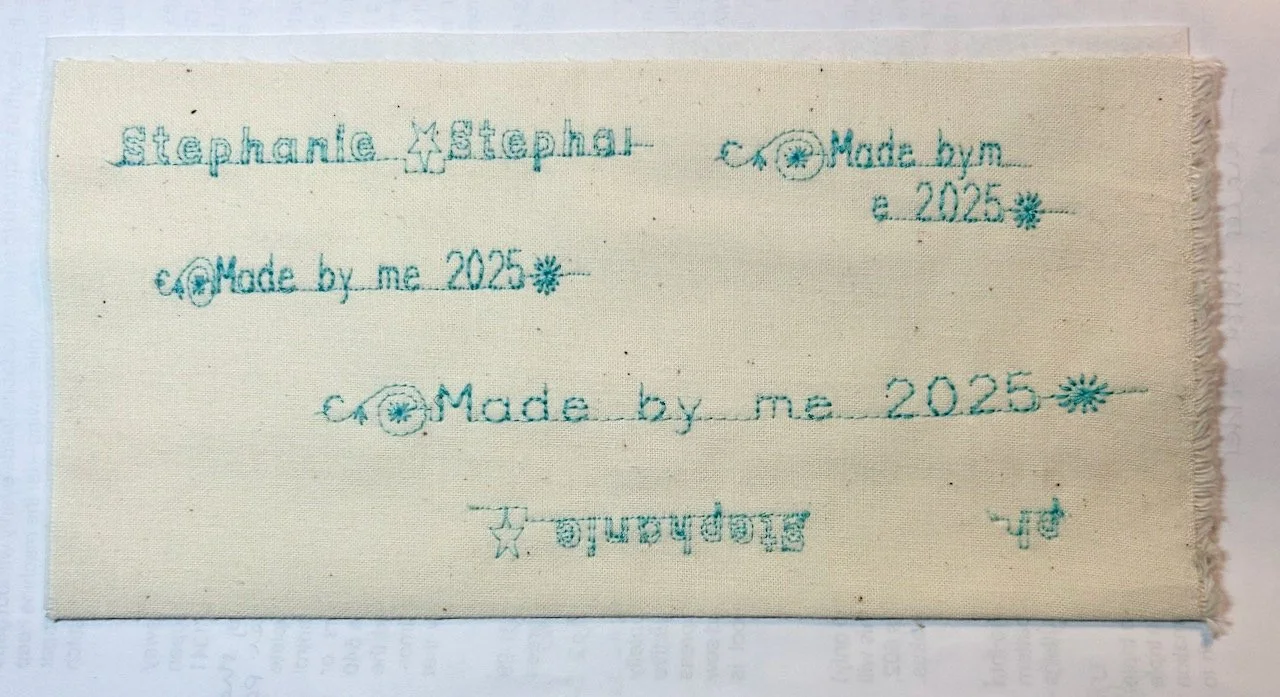 Stephanie Stephai
Made bym
e 2025
Made by me 2025
Made by me 2025
Stephanie
ph